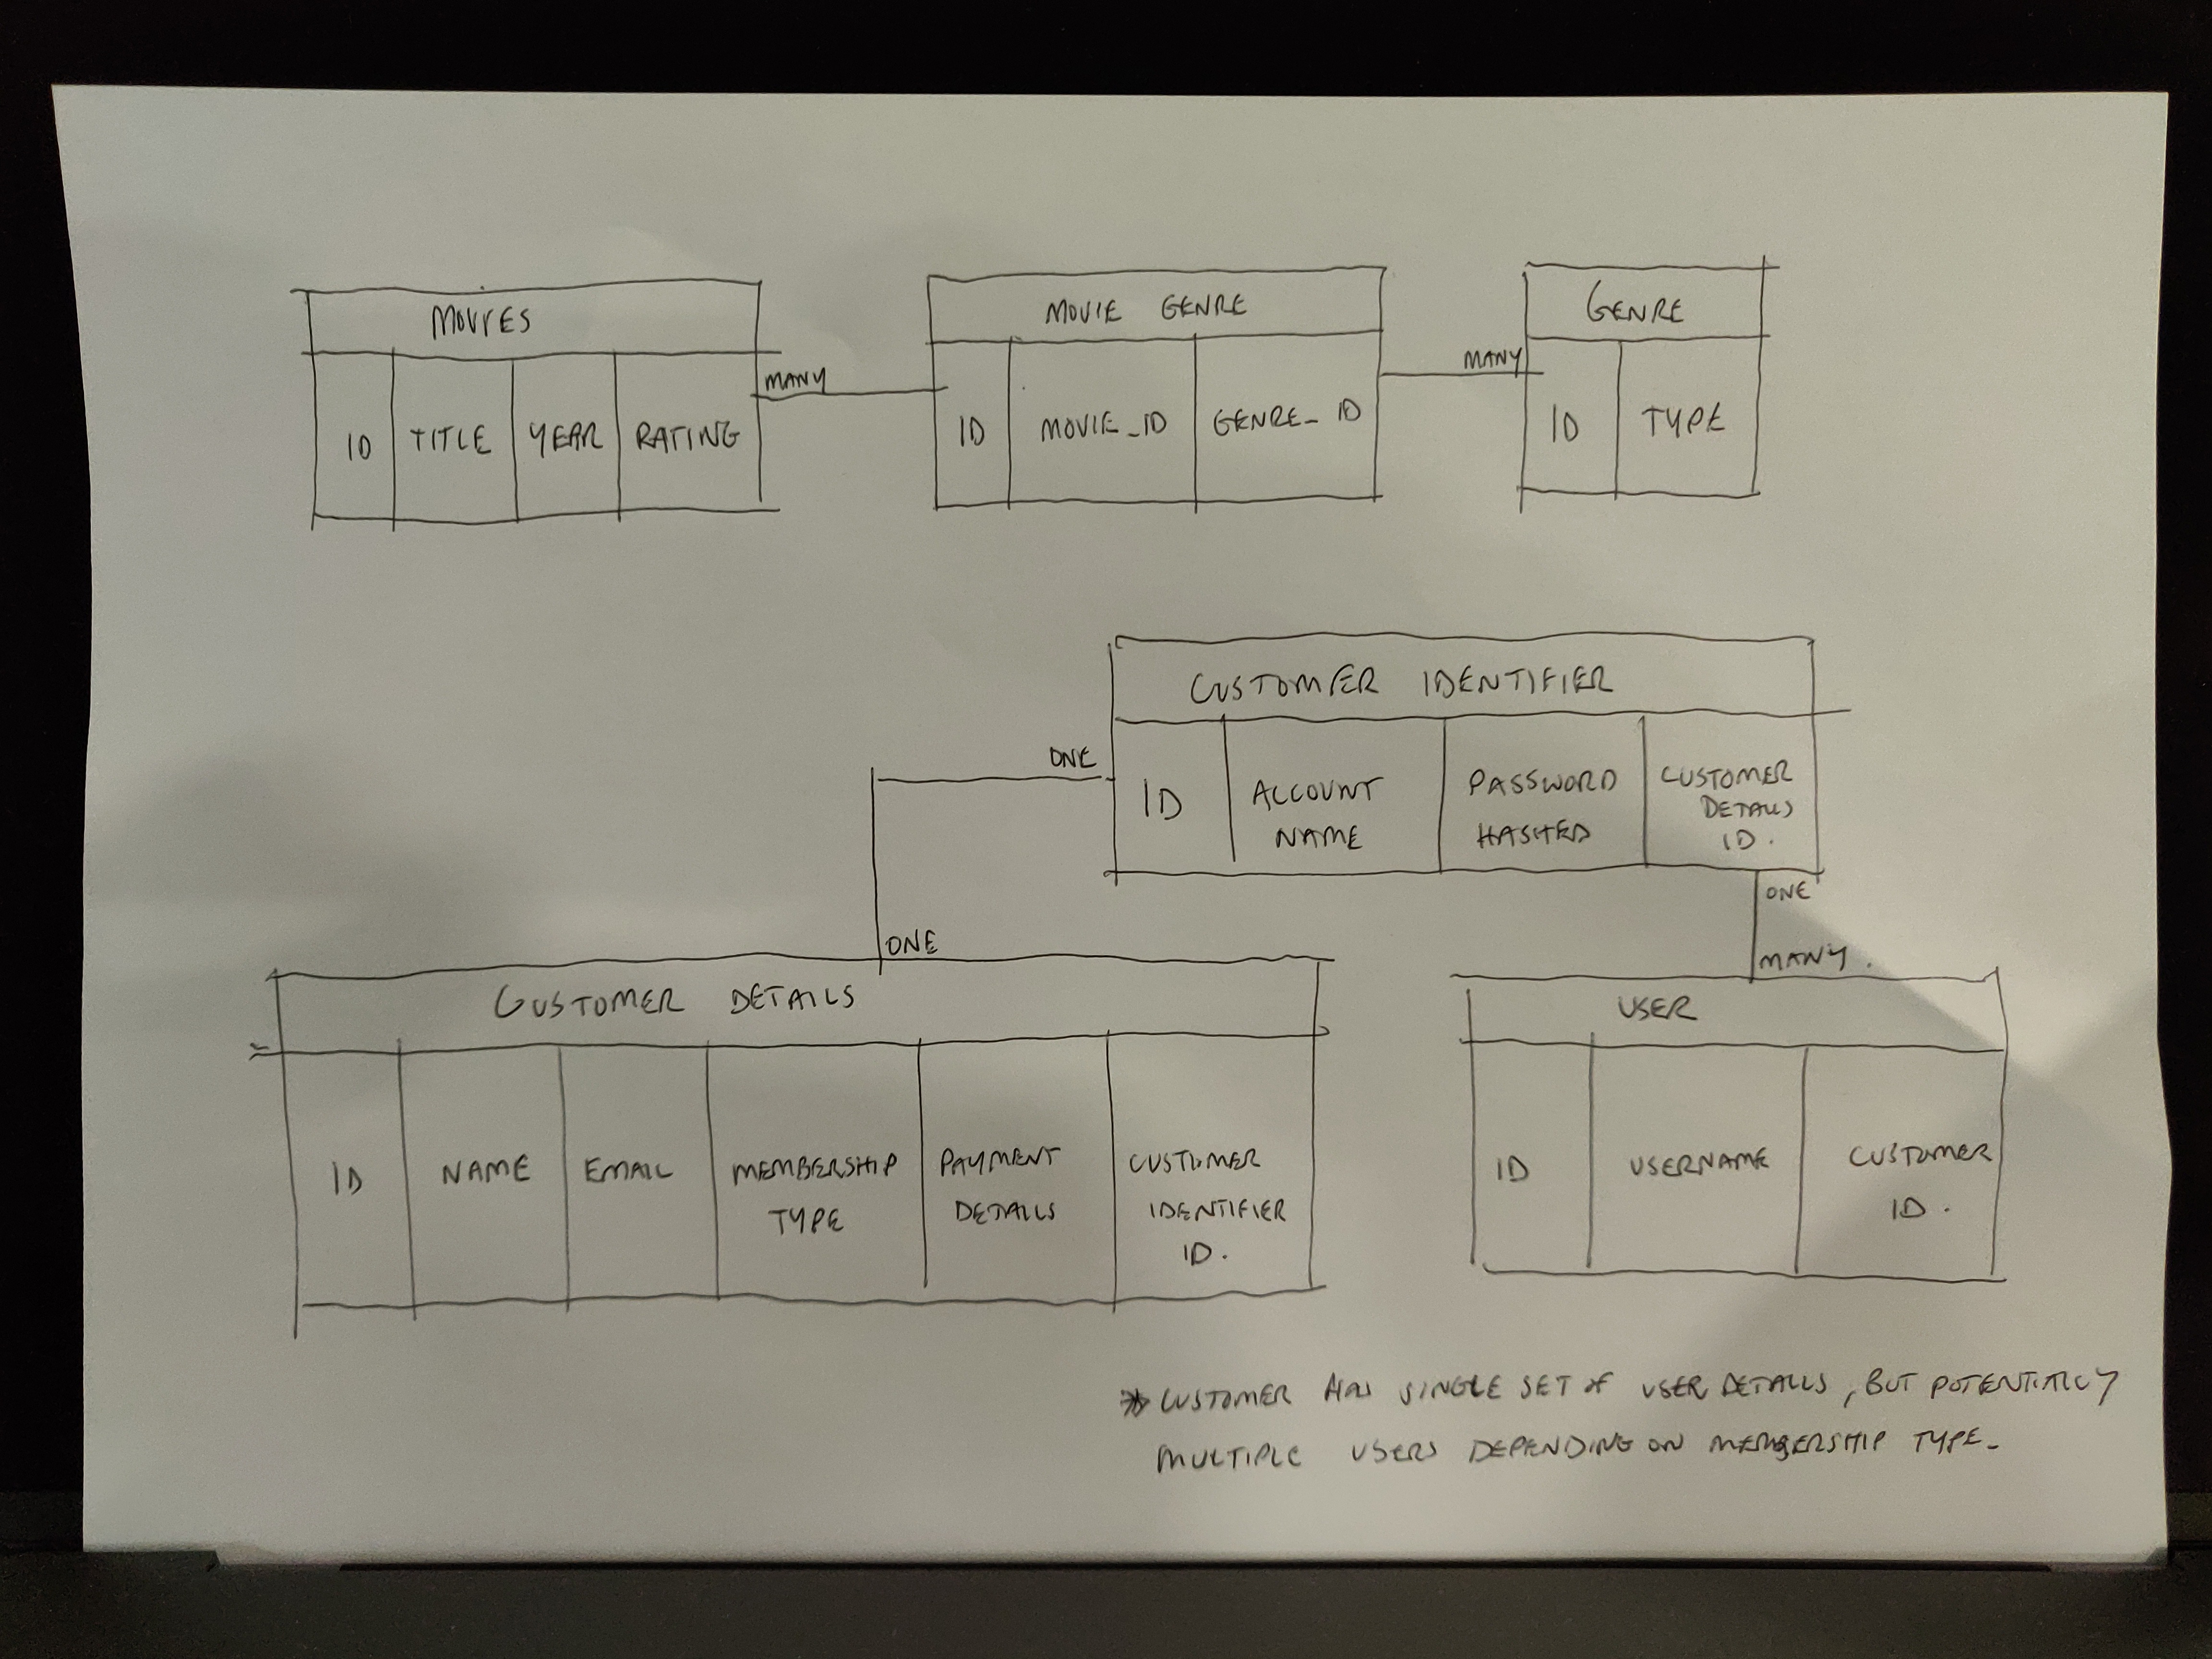 MOVIES
ID TITLE YEAR RATING
MANY
MOVIE GENRE
ID MOVIE_ID GENRE_ID
MANY
GENRE
ID TYPE
CUSTOMER IDENTIFIER
ID
ACCOUNT
NAME
PASSWORD
HASHED
CUSTOMER
DETAILS
ID.
ONE
ONE
ONE
MANY.
CUSTOMER DETAILS
ID
NAME
EMAIL
MEMBERSHIP
TYPE
PAYMENT
DETAILS
CUSTOMER
IDENTIFIER
ID.
USER
ID
USERNAME
CUSTOMER
ID.
* CUSTOMER HAS SINGLE SET OF USER DETAILS, BUT POTENTIALLY
MULTIPLE USERS DEPENDING ON MEMBERSHIP TYPE-